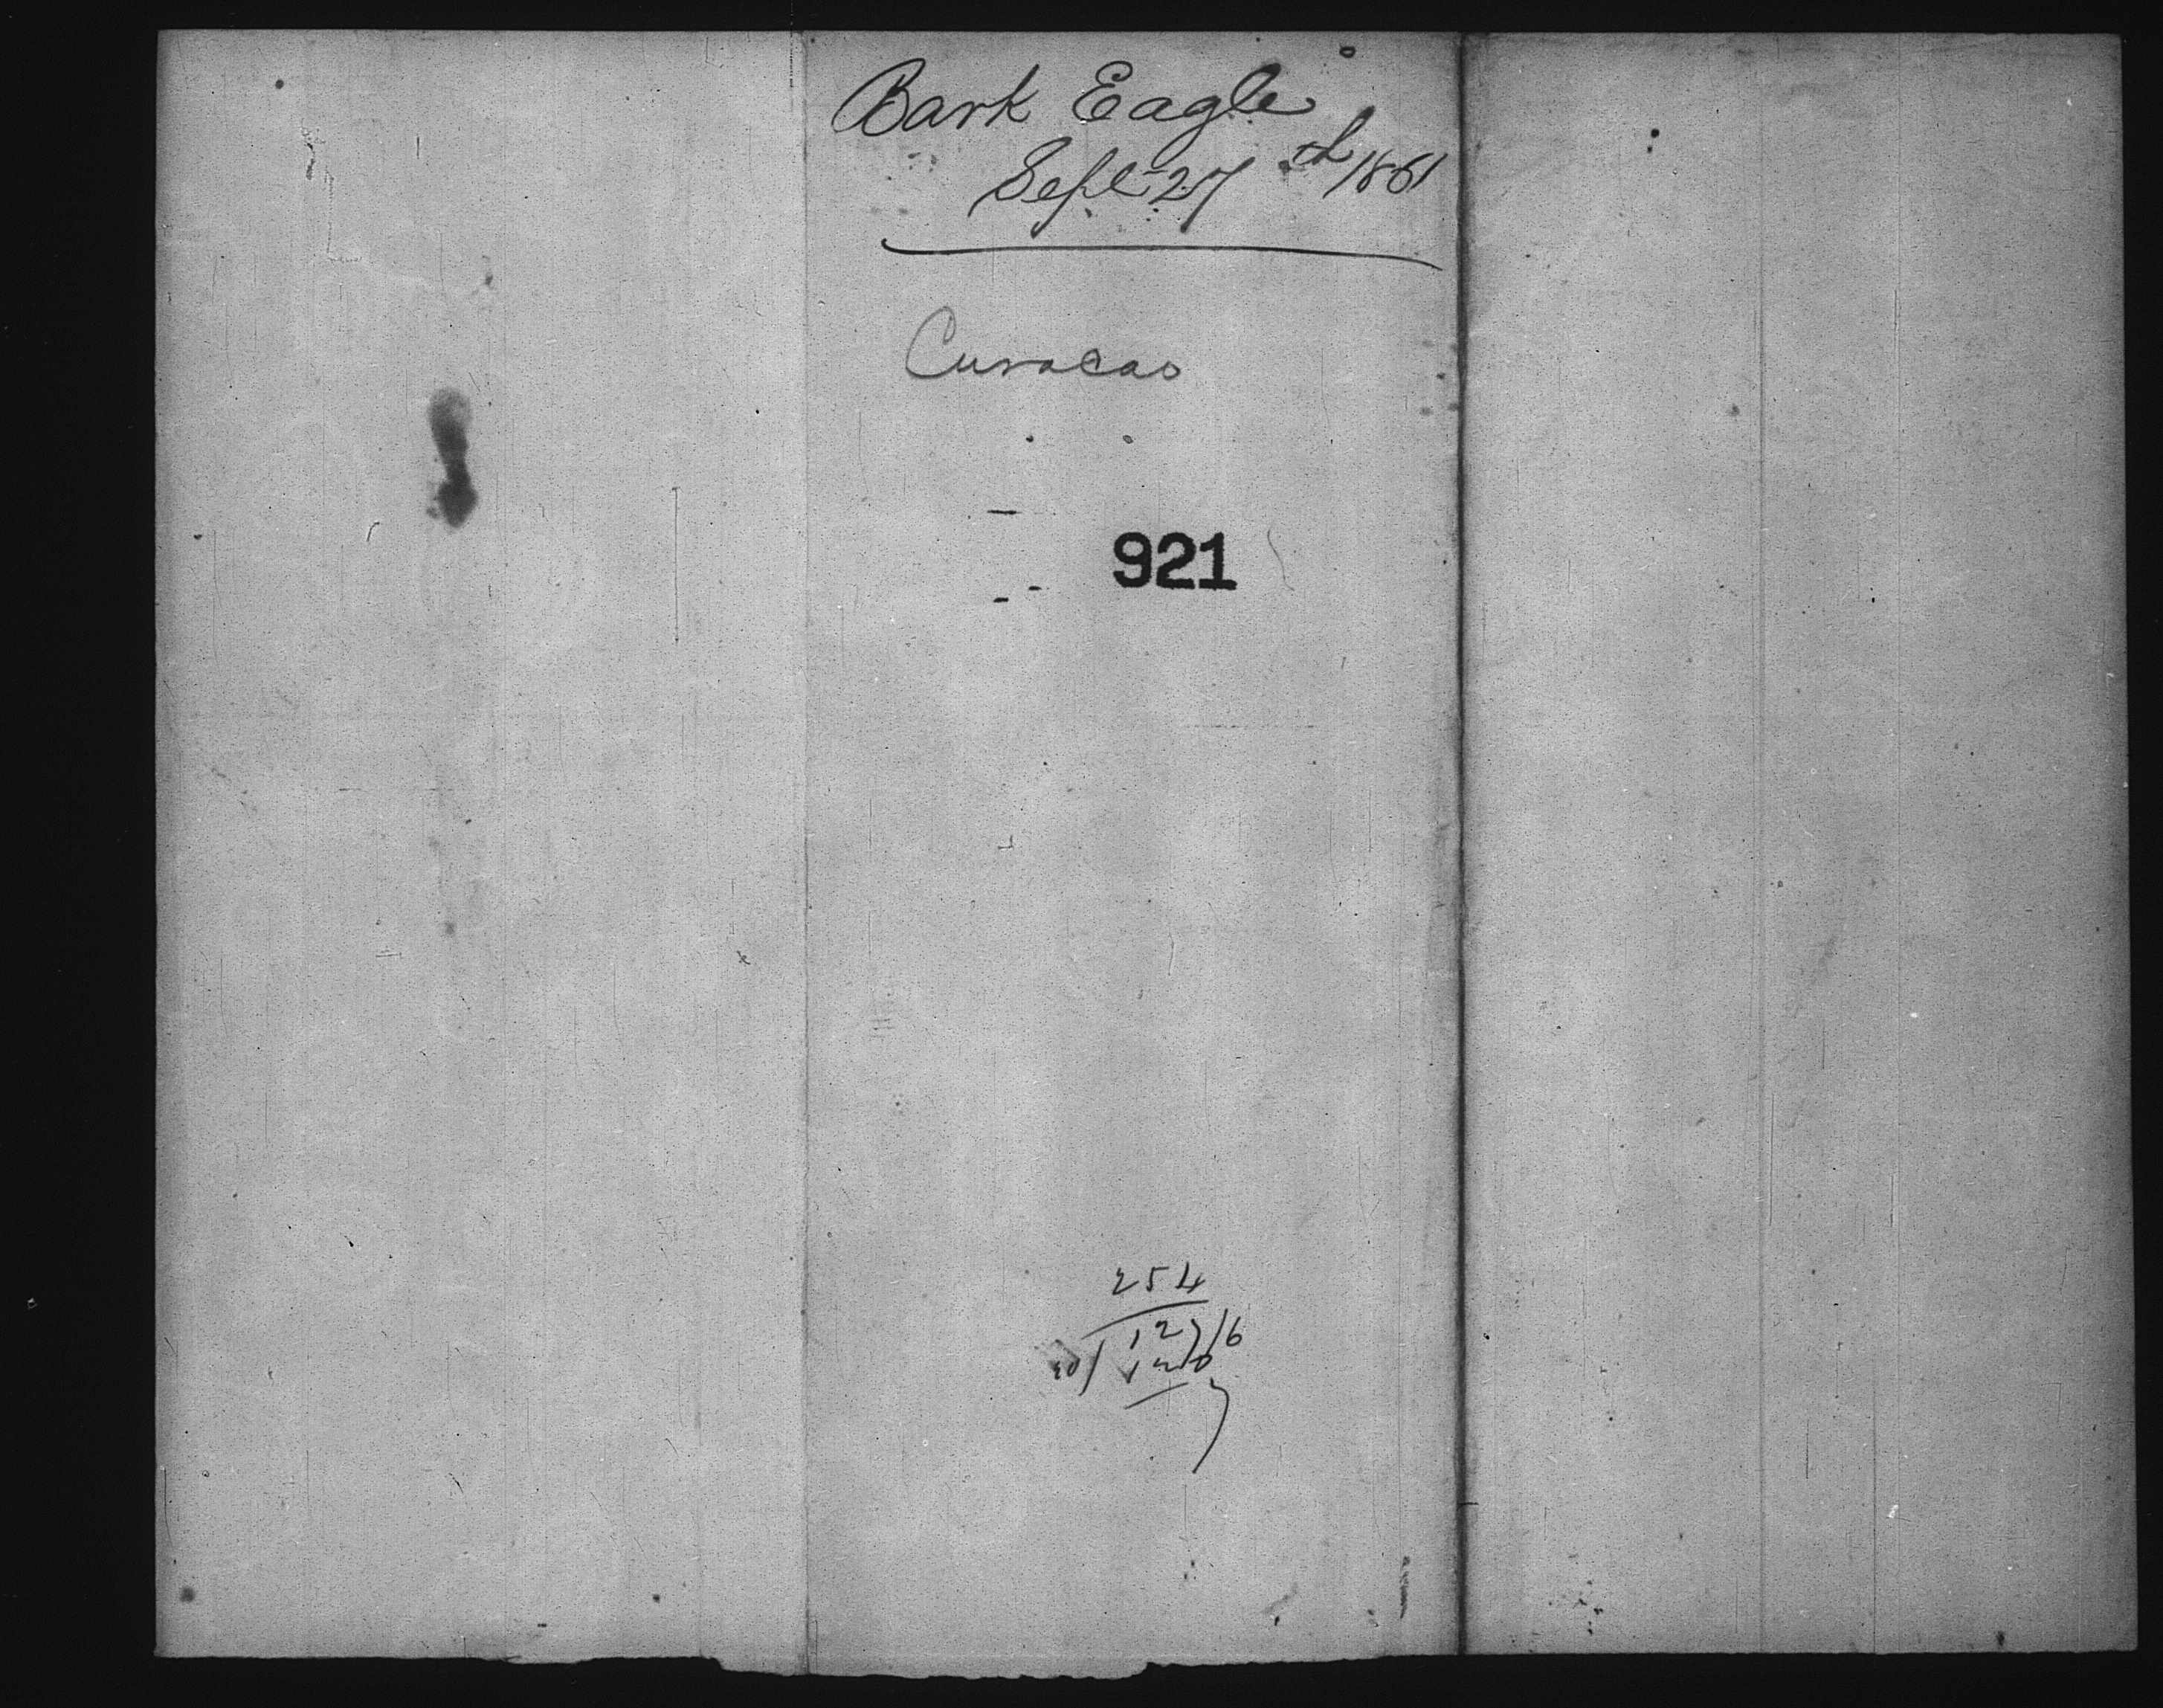 Bark Eagle
Sept 27th 1861
Curacao
921
254
127/6
120
7